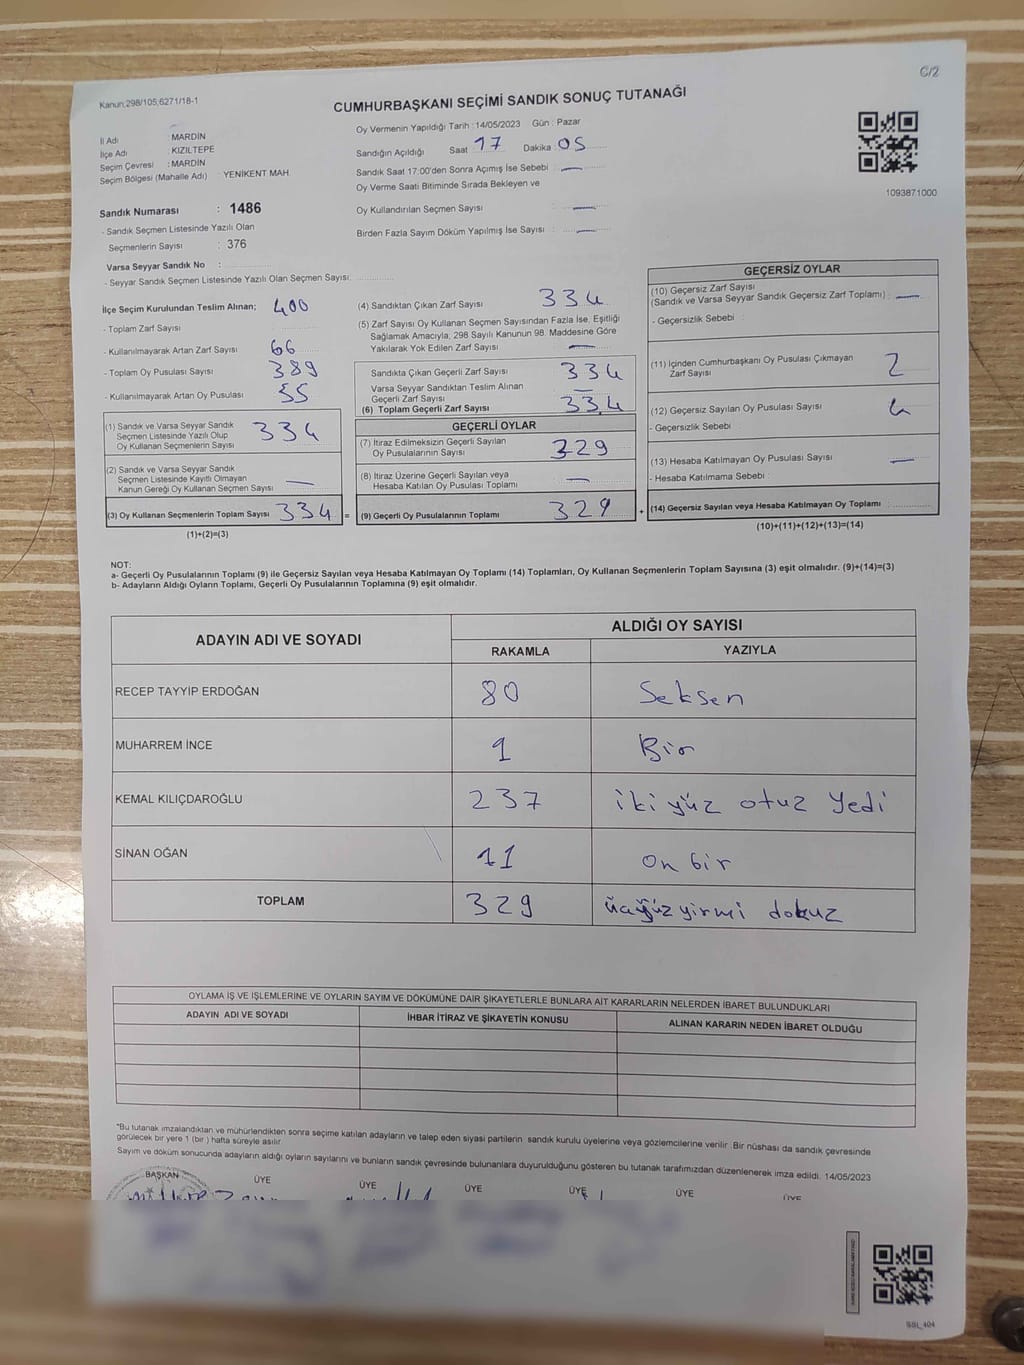 C/2
Kanun,298/105,6271/18-1
CUMHURBAŞKANI SEÇİMİ SANDIK SONUÇ TUTANAĞI
İl Adı : MARDİN
İlçe Adı : KIZILTEPE
Seçim Çevresi : MARDİN
Seçim Bölgesi (Mahalle Adı) : YENİKENT MAH.
Sandık Numarası : 1486
- Sandık Seçmen Listesinde Yazılı Olan
Seçmenlerin Sayısı : 376
Varsa Seyyar Sandık No :
- Seyyar Sandık Seçmen Listesinde Yazılı Olan Seçmen Sayısı:
Oy Vermenin Yapıldığı Tarih : 14/05/2023 Gün : Pazar
Sandığın Açıldığı Saat 17 Dakika 05
Sandık Saat 17:00'den Sonra Açımış İse Sebebi : —
Oy Verme Saati Bitiminde Sırada Bekleyen ve
Oy Kullandırılan Seçmen Sayısı : —
Birden Fazla Sayım Döküm Yapılmış İse Sayısı : —
1093871000
İlçe Seçim Kurulundan Teslim Alınan; 400
- Toplam Zarf Sayısı
- Kullanılmayarak Artan Zarf Sayısı 66
- Toplam Oy Pusulası Sayısı 389
- Kullanılmayarak Artan Oy Pusulası 55
(1) Sandık ve Varsa Seyyar Sandık
Seçmen Listesinde Yazılı Olup
Oy Kullanan Seçmenlerin Sayısı 334
(2) Sandık ve Varsa Seyyar Sandık
Seçmen Listesinde Kayıtlı Olmayan
Kanun Gereği Oy Kullanan Seçmen Sayısı —
(3) Oy Kullanan Seçmenlerin Toplam Sayısı 334 =
(1)+(2)=(3)
(4) Sandıktan Çıkan Zarf Sayısı 334
(5) Zarf Sayısı Oy Kullanan Seçmen Sayısından Fazla İse, Eşitliği
Sağlamak Amacıyla, 298 Sayılı Kanunun 98. Maddesine Göre
Yakılarak Yok Edilen Zarf Sayısı —
Sandıkta Çıkan Geçerli Zarf Sayısı 334
Varsa Seyyar Sandıktan Teslim Alınan
Geçerli Zarf Sayısı —
(6) Toplam Geçerli Zarf Sayısı 334
GEÇERLİ OYLAR
(7) İtiraz Edilmeksizin Geçerli Sayılan
Oy Pusulalarının Sayısı 329
(8) İtiraz Üzerine Geçerli Sayılan veya
Hesaba Katılan Oy Pusulası Toplamı —
(9) Geçerli Oy Pusulalarının Toplamı 329 +
GEÇERSİZ OYLAR
(10) Geçersiz Zarf Sayısı
(Sandık ve Varsa Seyyar Sandık Geçersiz Zarf Toplamı) : —
- Geçersizlik Sebebi :
(11) İçinden Cumhurbaşkanı Oy Pusulası Çıkmayan
Zarf Sayısı 2
(12) Geçersiz Sayılan Oy Pusulası Sayısı 4
- Geçersizlik Sebebi
(13) Hesaba Katılmayan Oy Pusulası Sayısı —
- Hesaba Katılmama Sebebi
(14) Geçersiz Sayılan veya Hesaba Katılmayan Oy Toplamı
(10)+(11)+(12)+(13)=(14)
NOT:
a- Geçerli Oy Pusulalarının Toplamı (9) ile Geçersiz Sayılan veya Hesaba Katılmayan Oy Toplamı (14) Toplamları, Oy Kullanan Seçmenlerin Toplam Sayısına (3) eşit olmalıdır. (9)+(14)=(3)
b- Adayların Aldığı Oyların Toplamı, Geçerli Oy Pusulalarının Toplamına (9) eşit olmalıdır.
ADAYIN ADI VE SOYADI
ALDIĞI OY SAYISI
RAKAMLA YAZIYLA
RECEP TAYYİP ERDOĞAN 80 Seksen
MUHARREM İNCE 1 Bir
KEMAL KILIÇDAROĞLU 237 iki yüz otuz Yedi
SİNAN OĞAN 11 on bir
TOPLAM 329 üçyüz yirmi dokuz
OYLAMA İŞ VE İŞLEMLERİNE VE OYLARIN SAYIM VE DÖKÜMÜNE DAİR ŞİKAYETLERLE BUNLARA AİT KARARLARIN NELERDEN İBARET BULUNDUKLARI
ADAYIN ADI VE SOYADI İHBAR İTİRAZ VE ŞİKAYETİN KONUSU ALINAN KARARIN NEDEN İBARET OLDUĞU
*Bu tutanak imzalandıktan ve mühürlendikten sonra seçime katılan adayların ve talep eden siyasi partilerin sandık kurulu üyelerine veya gözlemcilerine verilir. Bir nüshası da sandık çevresinde
görülecek bir yere 1 (bir ) hafta süreyle asılır.
Sayım ve döküm sonucunda adayların aldığı oyların sayılarını ve bunların sandık çevresinde bulunanlara duyurulduğunu gösteren bu tutanak tarafımızdan düzenlenerek imza edildi. 14/05/2023
BAŞKAN ÜYE ÜYE ÜYE ÜYE ÜYE ÜYE
SSL_404